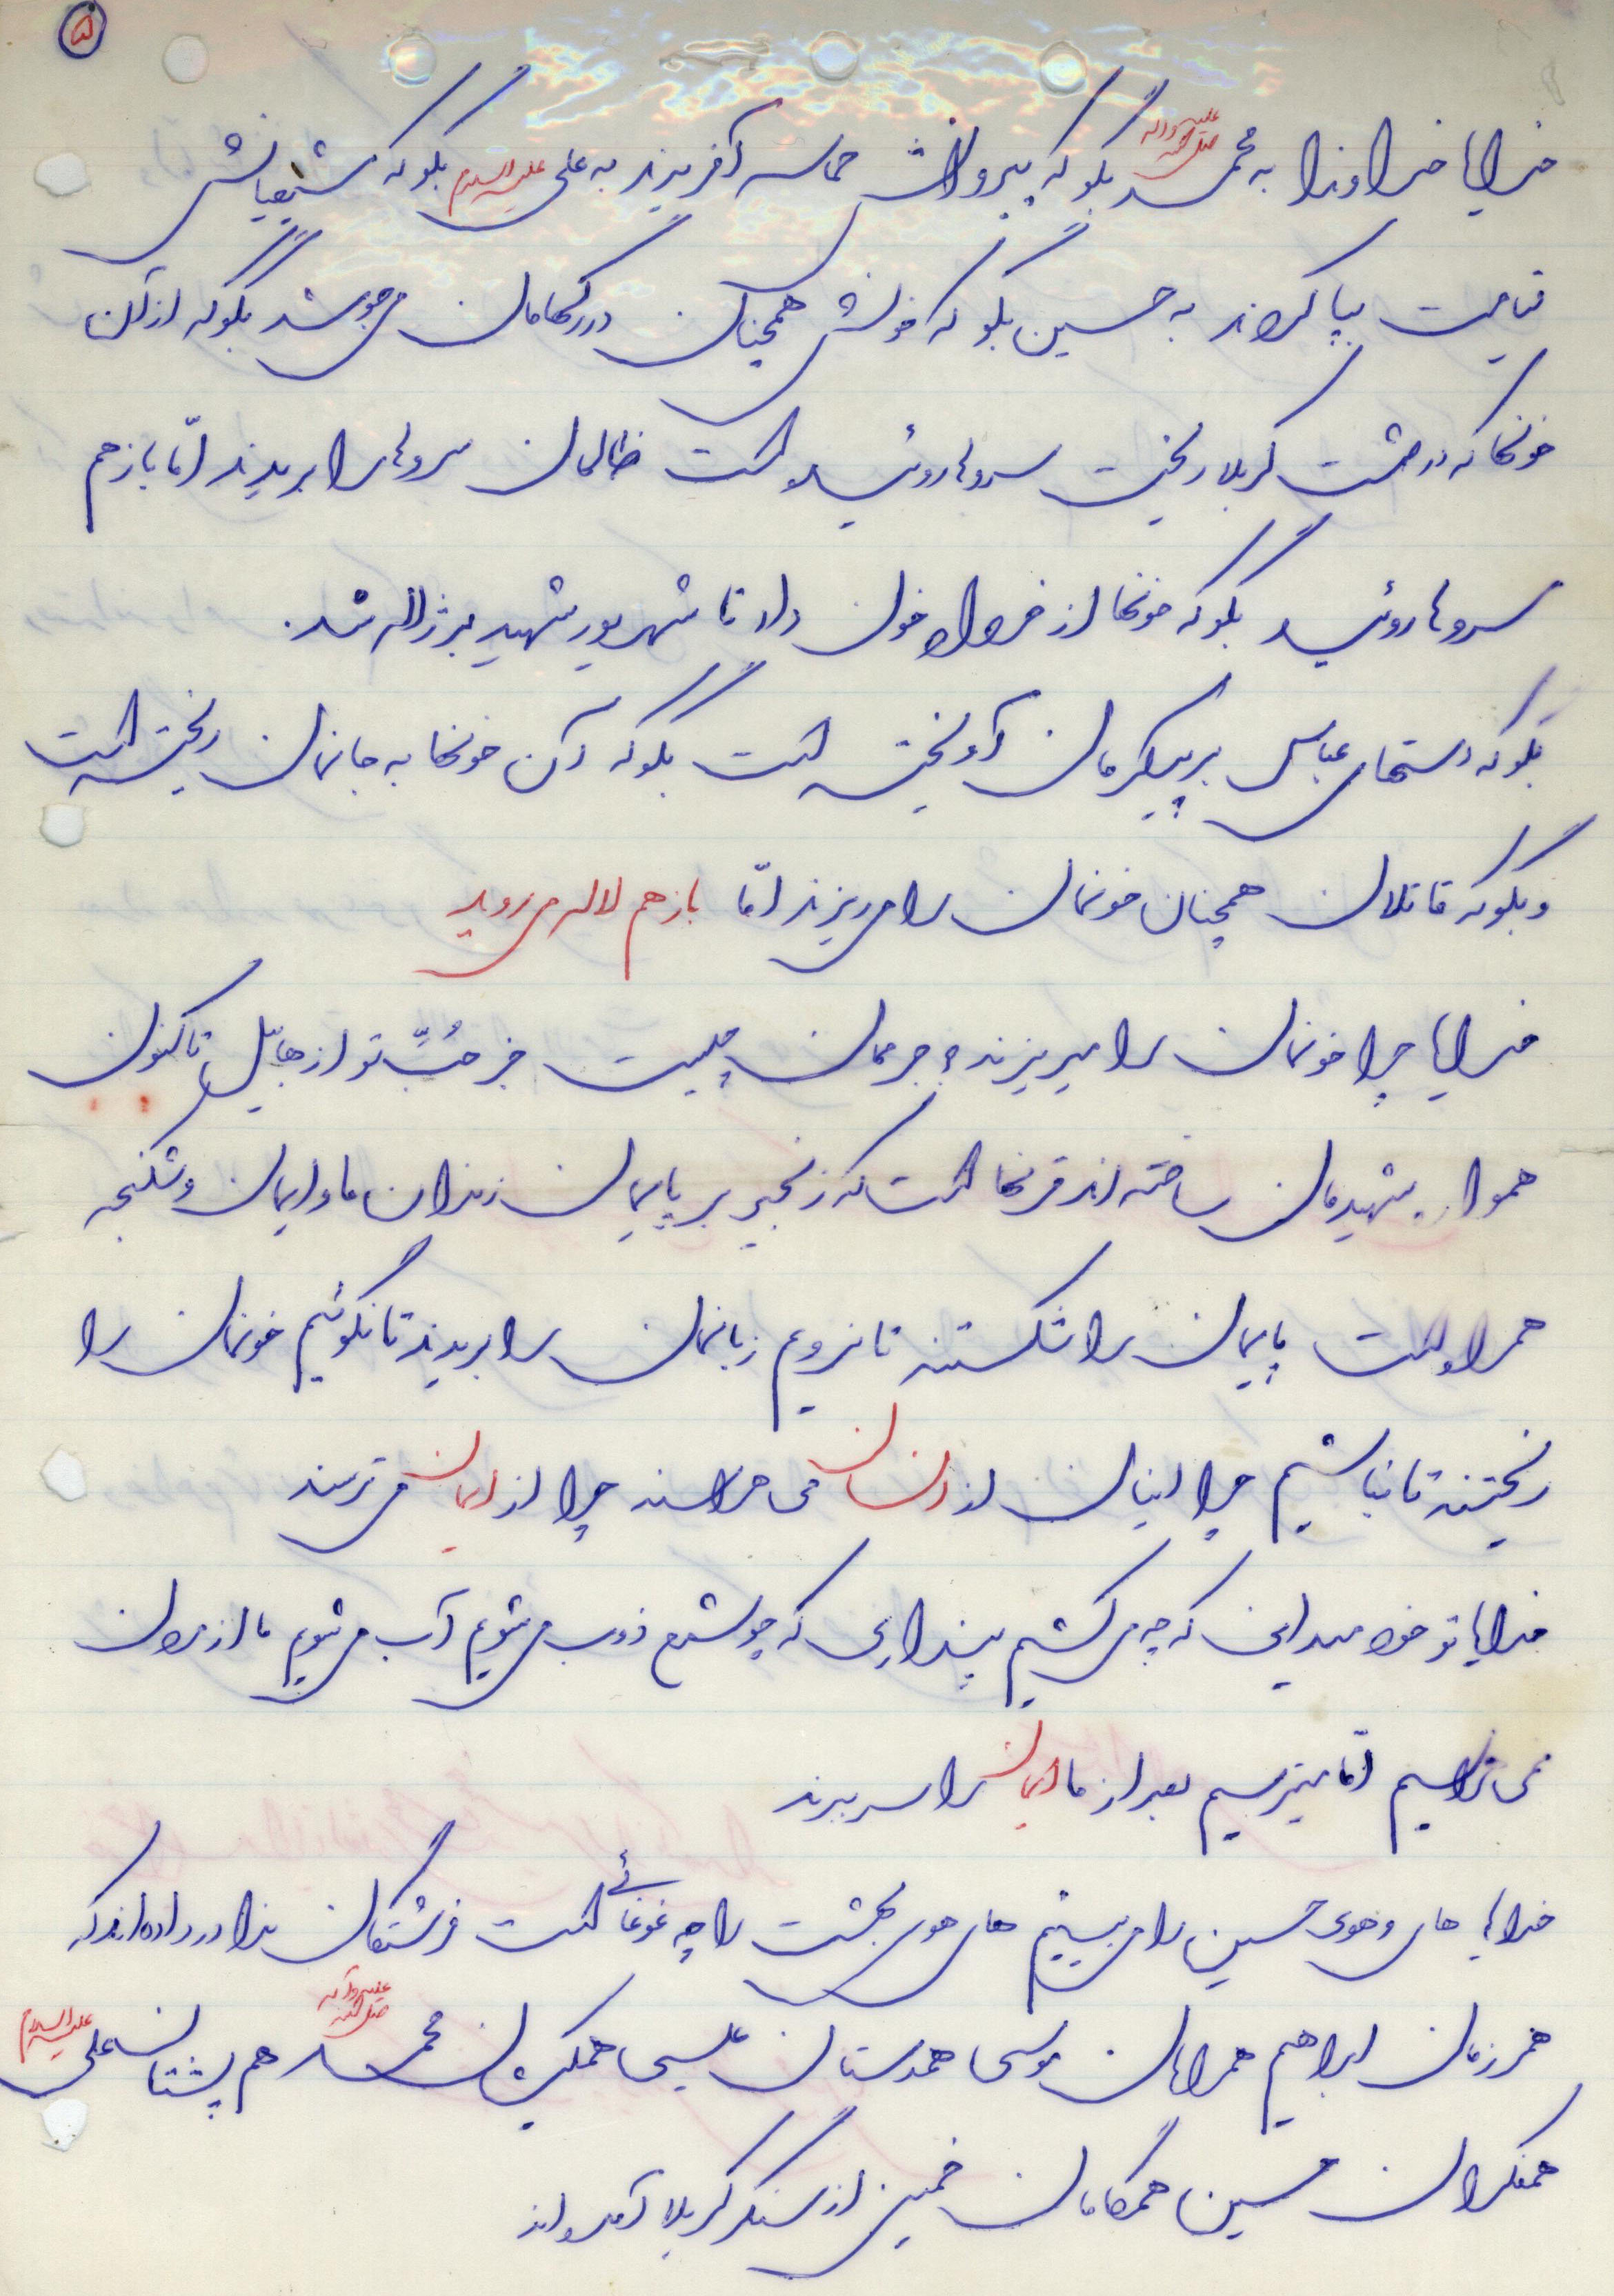 ۵
خدایا خداوندا به محمد صلی الله علیه و آله بگو که پیروانش حماسه آفریدند به علی علیه السلام بگو که شیعیانش
قیامت بپا کردند به حسین بگو که خونش همچنان در رگهامان می جوشد بگو که از آن
خونها که در دشت کربلا ریخت سروها روئیده است ظالمان سروها را بریدند امّا باز هم
سروها روئید بگو که خونها از خرداد خون داد تا شهریور شهید پرژاله شد.
بگو که دستهای عباس بر پیکرمان آویخته است بگو که آن خونها به جانمان ریخته است
و بگو که قاتلان همچنان خونمان را می ریزند امّا باز هم لاله می روید
خدایا چرا خونمان را میریزند و جرممان چیست جز حُبِّ تو از هابیل تاکنون
همواره شهیدمان ساخته اند قرنها است که زنجیر بر پایمان زندان ماوایمان و شکنجه
همراه است پایمان را شکستند تا نرویم زبانمان را بریدند تا نگوئیم خونمان را
ریختند تا نباشیم چرا اینان از انسان می هراسند چرا از ایمان می ترسند
خدایا تو خود میدانی که چه می کشیم پنداری که چو شمع ذوب می شویم آب می شویم ما از مردن
نمی هراسیم امّا میترسیم بعد از ما ایمان را سر ببرند
خدایا های و هوی حسین را می بینیم های هوی بهشت را چه غوغائی است فرشتگان ندا در داده اند که
همرزمان ابراهیم همراهان موسی همدستان عیسی همکیشان محمد صلی الله علیه و آله هم پشتان علی علیه السلام
همفکران حسین همگامان خمینی از سنگر کربلا آمده اند